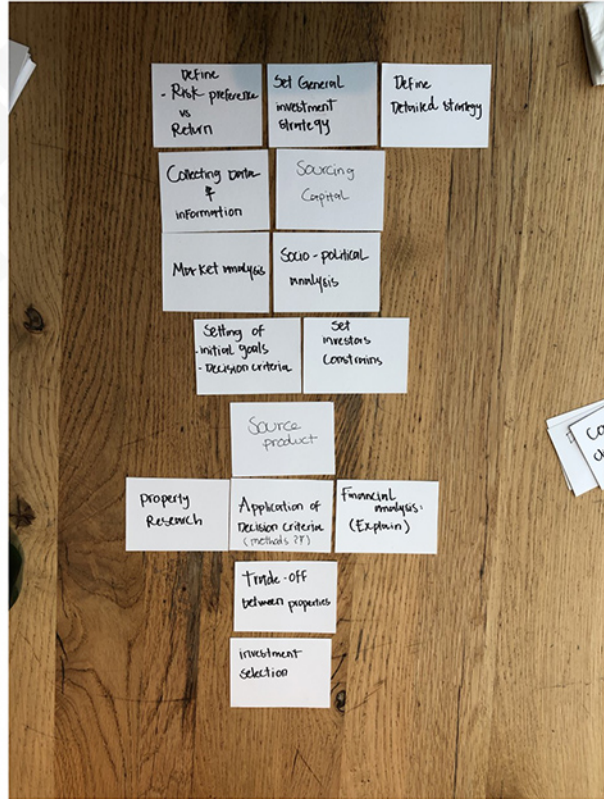 Define
- Risk preference
vs
Return
Set General
investment
strategy
Define
Detailed strategy
Collecting Data
&
information
Sourcing
Capital
Market analysis
Socio-political
analysis
Setting of
- initial goals
- Decision criteria
Set
investors
constrains
Source
product
Property
Research
Application of
Decision criteria
(methods ??)
Financial
analysis:
(Explain)
Trade-off
between properties
investment
selection